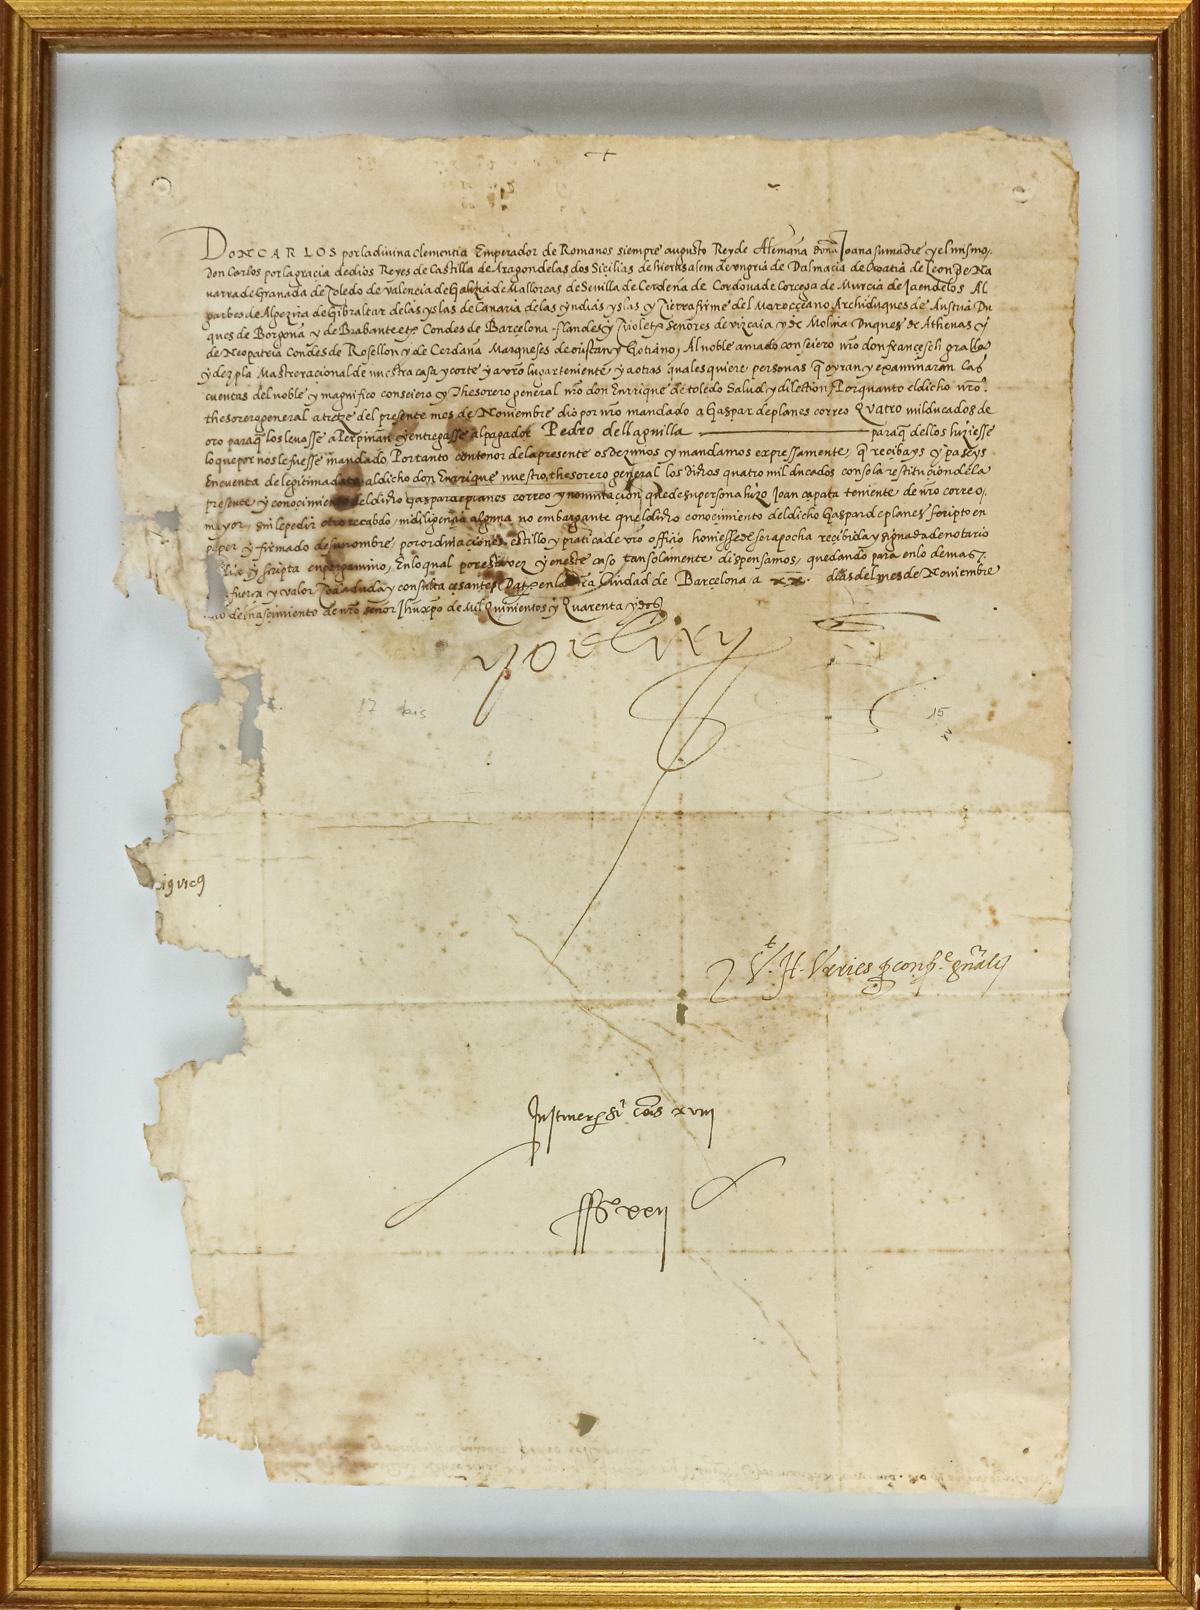 DON CARLOS por la divina clementia Emperador de Romanos siempre augusto Rey de Alemaña doña Joana su madre y el mismo
don Carlos por la gracia de dios Reyes de Castilla de Aragon de las dos Sicilias de hierusalem de ungria de Dalmacia de Croatia de Leon de Na
uarra de Granada de Toledo de Valencia de Galizia de Mallorcas de Seuilla de Cerdeña de Cordoua de Corcega de Murcia de Jaen de los Al
garbes de Algezira de Gibraltar de las yslas de Canaria de las yndias yslas y Tierra firme del Mar occeano Archiduques de Austria Du
ques de Borgoña y de Brabante etc Condes de Barcelona flandes y Tirol etc Señores de vizcaia y de Molina Duques de Athenas y
de Neopatria Condes de Rosellon y de Cerdaña Marqueses de oristan y Gotiano, Al noble amado conseiero nro don francesch gralla
y dezpla Mastre racional de nuestra casa y corte y a vro lugarteniente y a otras qualesquiere personas q oyran y examinaran las
cuentas del noble y magnifico conseiero y Thesorero general nro don Enrrique de toledo Salud y dilection Por quanto el dicho nro
thesorero general a treze del presente mes de Nouiembre dio por nro mandado a Gaspar de planes correo Quatro mil ducados de
oro para q los leuasse a Perpiñan y entregasse al pagador Pedro del aguilla para q dellos hiziesse
lo que por nos le fuesse mandado, Por tanto con tenor de la presente os dezimos y mandamos expressamente, q recibays y passeys
en cuenta de legitima data al dicho don Enrrique nuestro thesorero general los dichos quatro mil ducados con sola restitucion de la
presente y conocimiento del dicho Gaspar de planes correo y nominacion que de su persona hizo Joan capata teniente de nro correo
mayor, sin le pedir otro recabdo, ni diligencia alguna no embargante que el dicho conocimiento del dicho Gaspar de planes scripto en
paper y firmado de su nombre por ordinaciones, estillo y pratica de vro officio houiesse de ser apocha recibida y signada de notario
y scripta en pergamino, En lo qual por esta vez y en este caso tansolamente dispensamos, quedando para en lo demas
fuerça y valor, Toda duda y consulta cesantes Dat en la nra Ciudad de Barcelona a xx. dias del mes de Nouiembre
del nascimiento de nro señor Jhuxpo de Mil Quinientos y Quarenta y dos
yo el rey
17 bis
15
Vt. H. Vrries
xviii
xxii